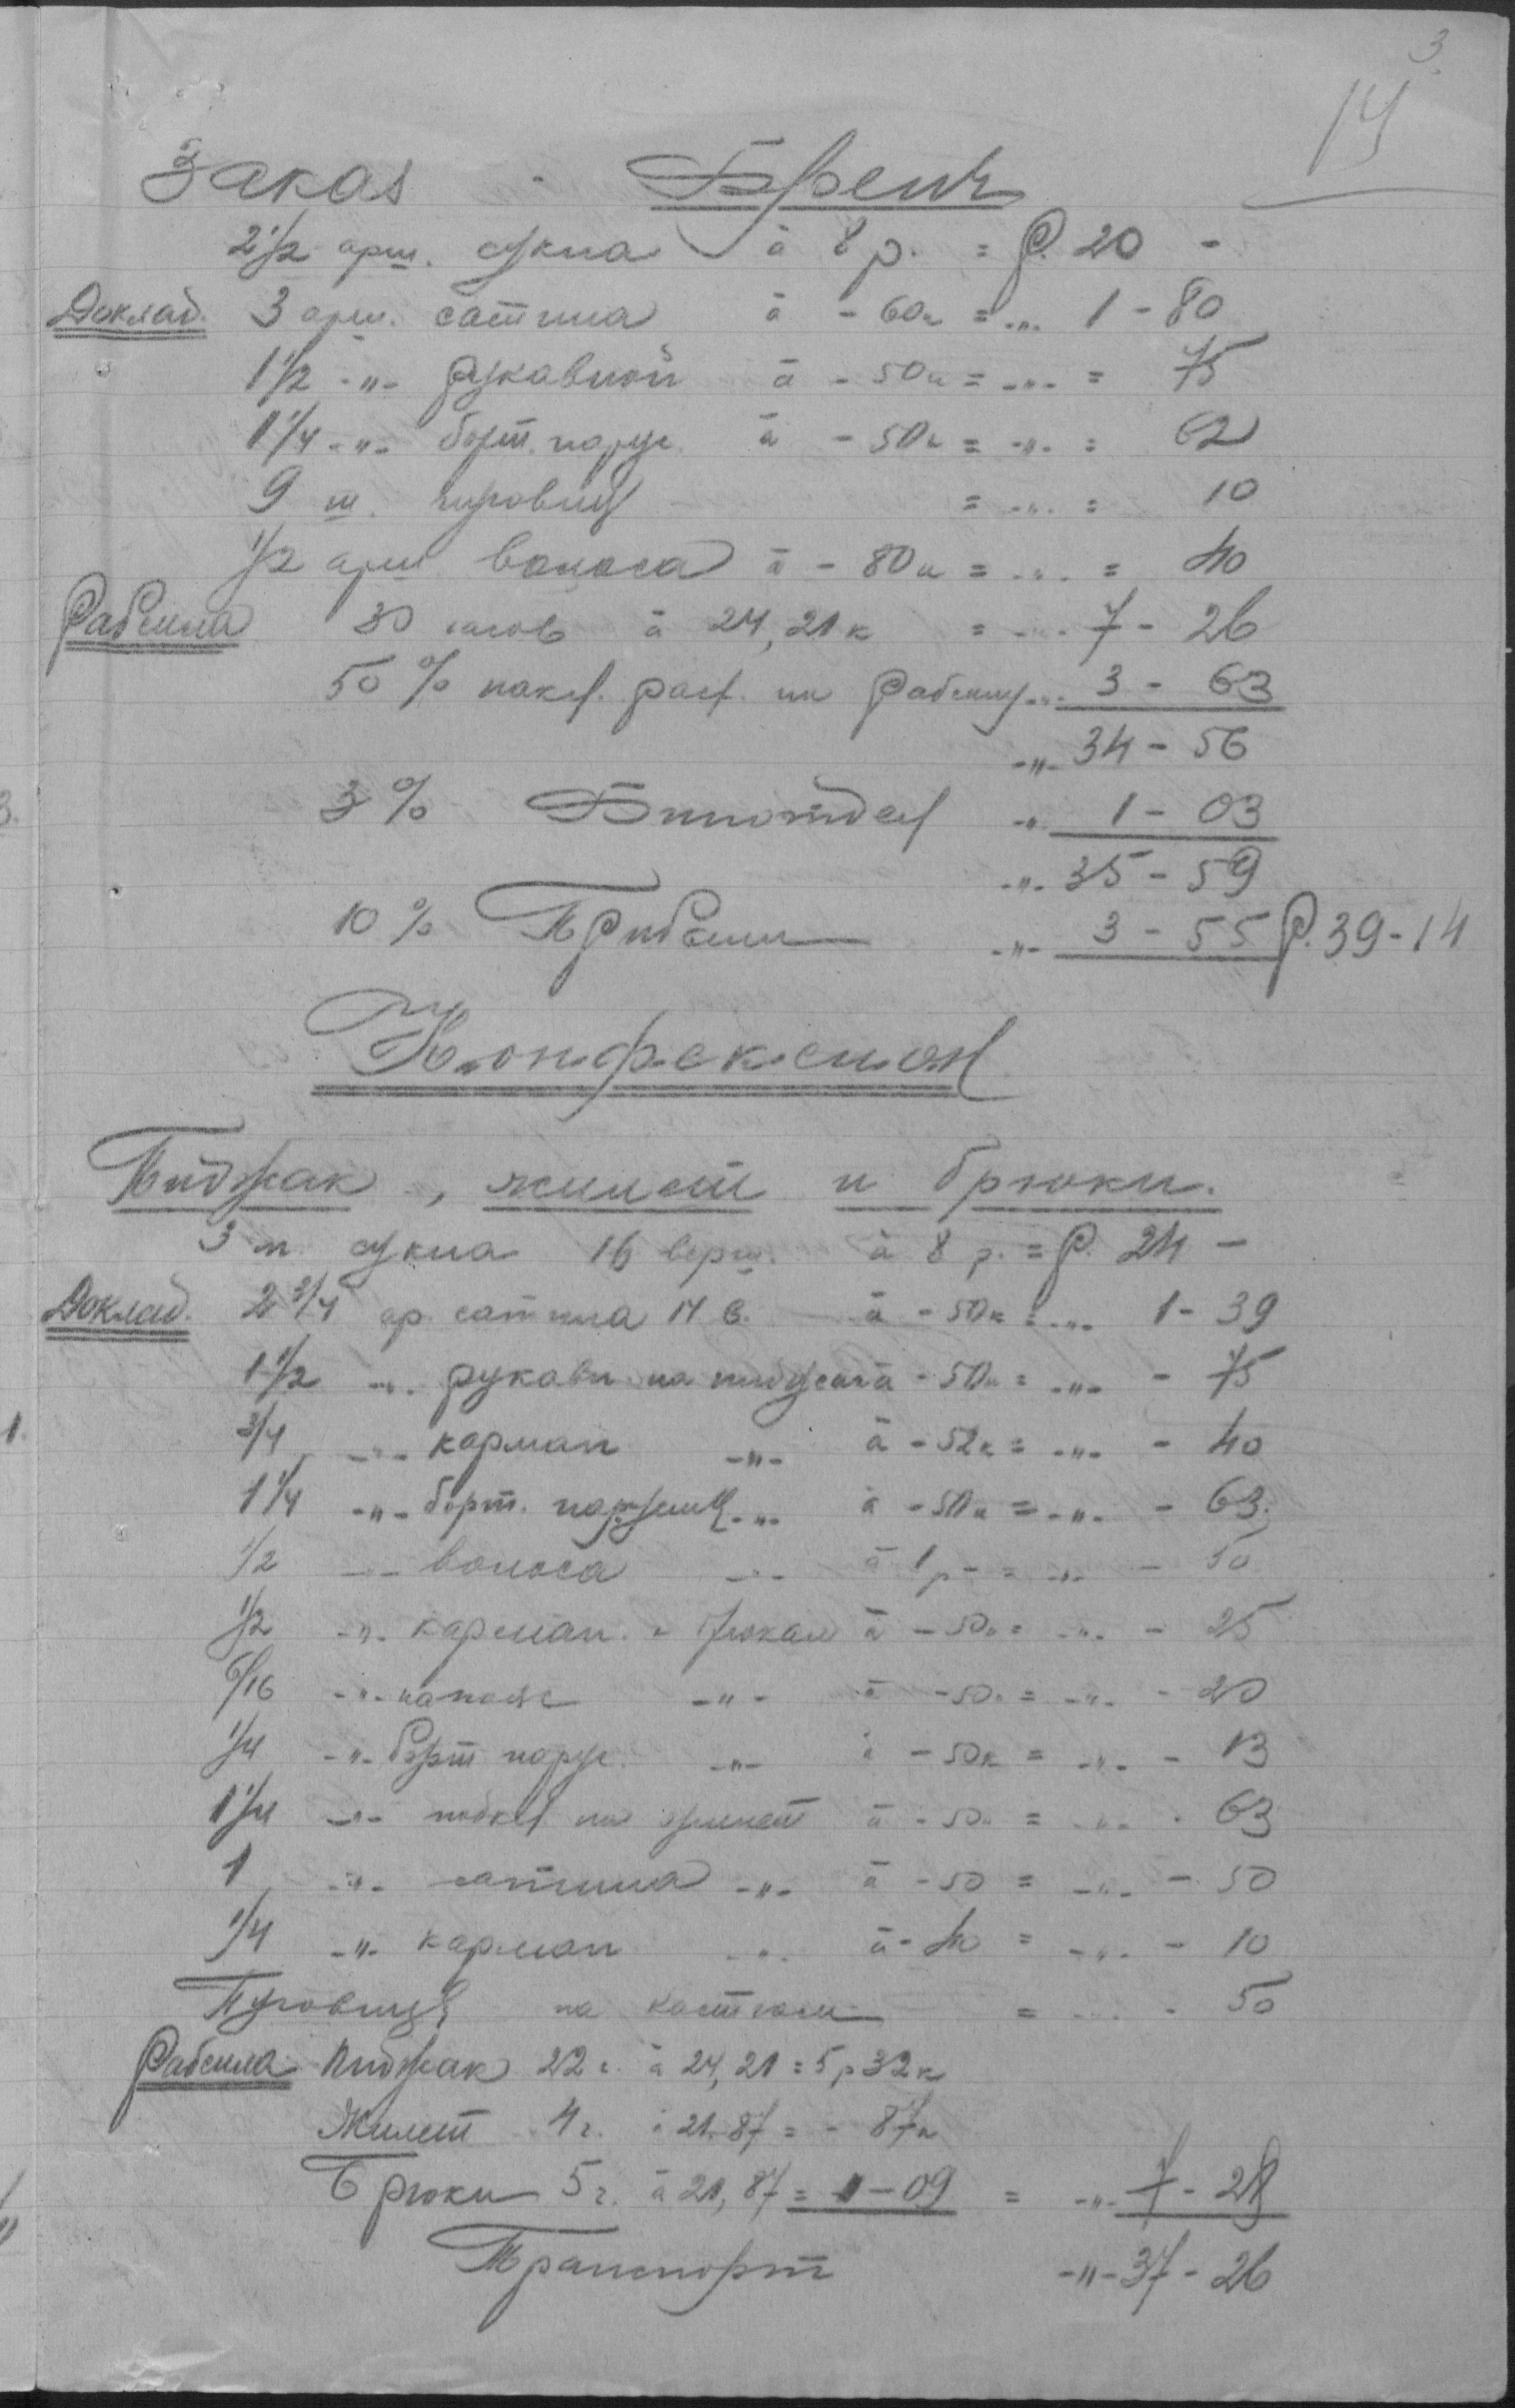 3
14
Заказ - Френч
2 1/2 арш. сукна à 8 р. = Р. 20 -
Доклад. 3 арш. сатина à - 60к = -"- 1 - 80
1 1/2 -"- рукавной à - 50к = -"- = 75
1 1/4 -"- борт. парус. à - 50к = -"- = 62
9 ш. пуговиц = -"- = 10
1/2 арш волоса à - 80к = -"- = 40
Рабсила 30 часов à 24,21к = -"- 7 - 26
50% накл. расх. на рабсилу -"- 3 - 63
-"- 34 - 56
3% -"- 1 - 03
-"- 35 - 59
10% Прибыли -"- 3 - 55 Р. 39 - 14
Конфексион
Пиджак, жилет и брюки.
3 м сукна 16 верш. à 8 р. = Р. 24 -
Доклад. 2 3/4 ар. сатина 14 в. à - 50к = -"- 1 - 39
1 1/2 -"- рукавн на пиджак à - 50к = -"- - 75
3/4 -"- карман -"- à - 52к = -"- - 40
1 1/4 -"- борт. парусины -"- à - 50к = -"- - 63
1/2 -"- волоса -"- à 1р - = -"- - 50
1/2 -"- карман. к брюкам à - 50к = -"- - 25
6/16 -"- -"- à - 50к = -"- - 20
1/4 -"- борт парус. -"- à - 50к = -"- - 13
1 1/4 -"- подкл на жилет à - 50к = -"- - 63
1 -"- сатина -"- à - 50 = -"- - 50
1/4 -"- карман -"- à - 40 = -"- - 10
Пуговицы на костюм = -"- - 50
Рабсила Пиджак 22 ч. à 24,21 = 5 р 32к
Жилет 4 ч. à 21.87 = - 87к
Брюки 5 ч. à 21,87 = 1 - 09 = -"- 7 - 28
Транспорт -"- 37 - 26